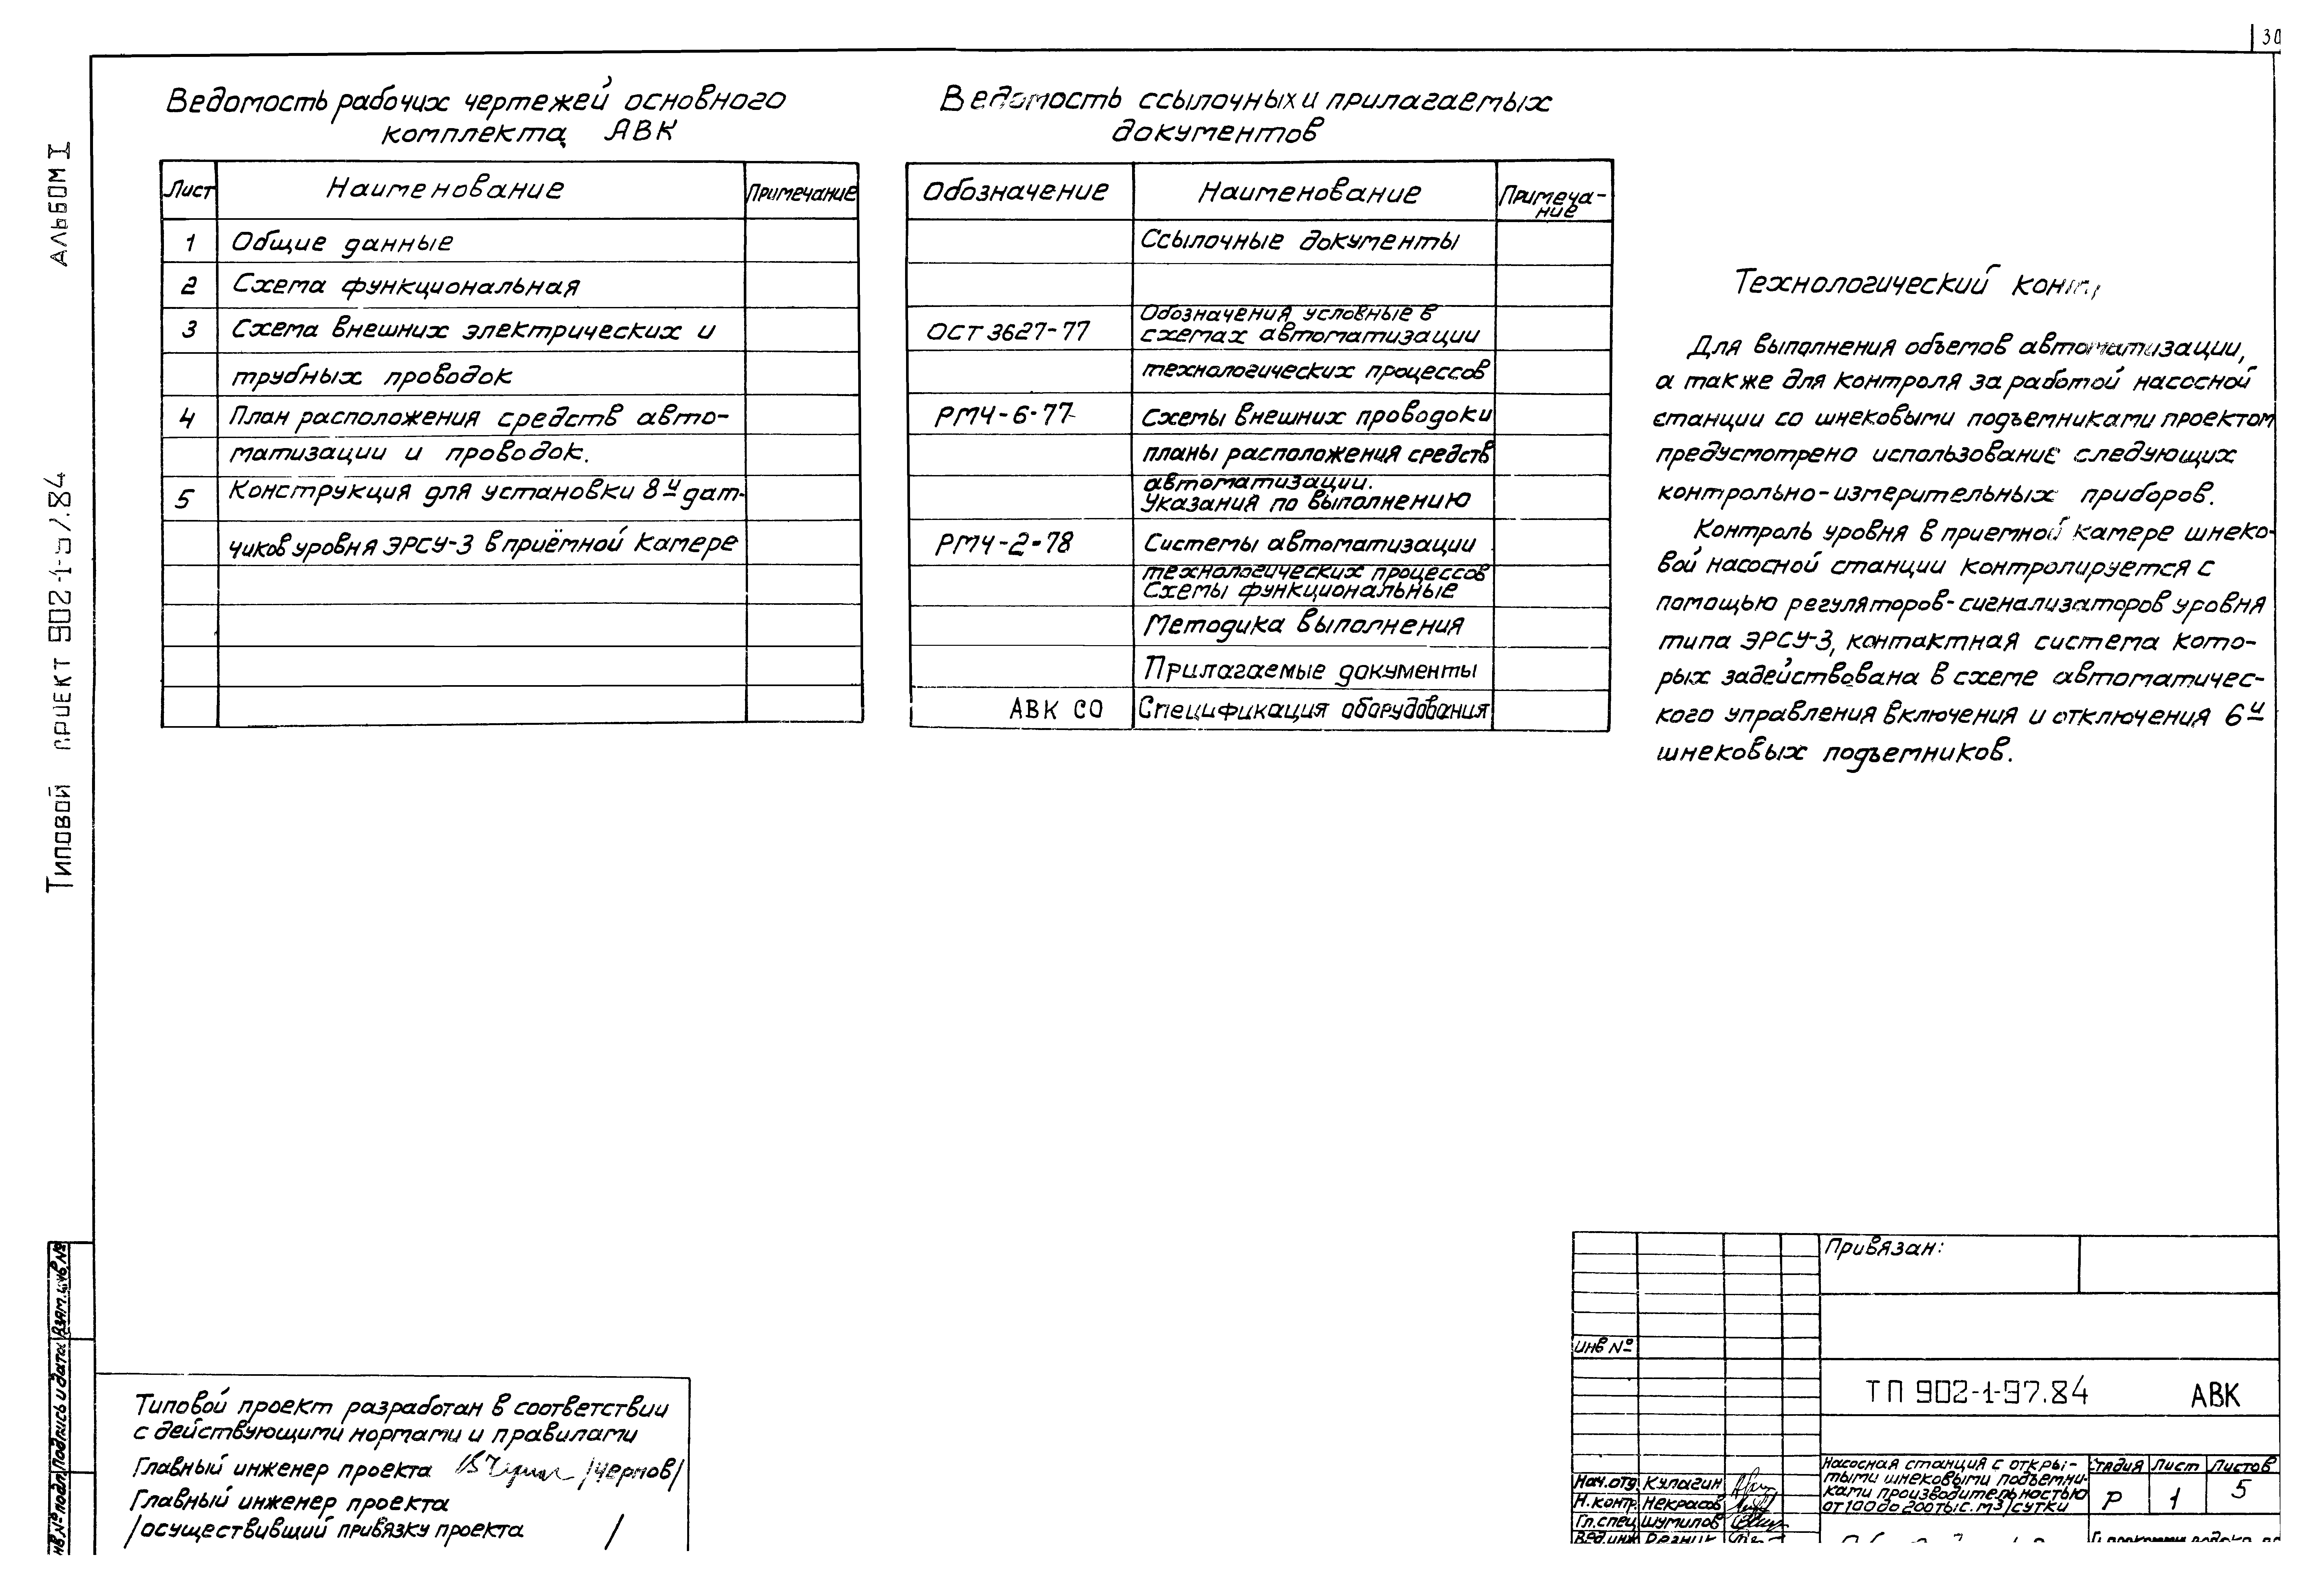 30
АЛЬБОМ I
Типовой проект 902-1-97.84
Ведомость рабочих чертежей основного
комплекта АВК
Лист Наименование Примечание
1 Общие данные
2 Схема функциональная
3 Схема внешних электрических и
трубных проводок
4 План расположения средств авто-
матизации и проводок.
5 Конструкция для установки 8и дат-
чиков уровня ЭРСУ-3 в приёмной камере
Ведомость ссылочных и прилагаемых
документов
Обозначение Наименование Примеча-
ние
Ссылочные документы
Обозначения условные в
ОСТ 3627-77 схемах автоматизации
технологических процессов
РМ4-6-77 Схемы внешних проводок и
планы расположения средств
автоматизации.
Указания по выполнению
РМ4-2-78 Системы автоматизации
технологических процессов
Схемы функциональные
Методика выполнения
Прилагаемые документы
АВК СО Спецификация оборудования
Технологический
Для выполнения объемов автоматизации,
а также для контроля за работой насосной
станции со шнековыми подъемниками проектом
предусмотрено использование следующих
контрольно-измерительных приборов.
Контроль уровня в приемной камере шнеко-
вой насосной станции контролируется с
помощью регуляторов-сигнализаторов уровня
типа ЭРСУ-3, контактная система кото-
рых задействована в схеме автоматичес-
кого управления включения и отключения 6и
шнековых подъемников.
Взам. инв №
Подпись и дата
инв № подл
Типовой проект разработан в соответствии
с действующими нормами и правилами
Главный инженер проекта /Чернов/
Главный инженер проекта
/осуществивший привязку проекта /
Привязан:
инв №
ТП 902-1-97.84 АВК
Насосная станция с откры-
тыми шнековыми подъемни-
ками производительностью
от 100 до 200 тыс. м3/сутки
Стадия Лист Листов
Р 1 5
Нач.отд. Кулагин
Н.контр. Некрасов
Гл.спец Шумилов
Вед.инж Резник